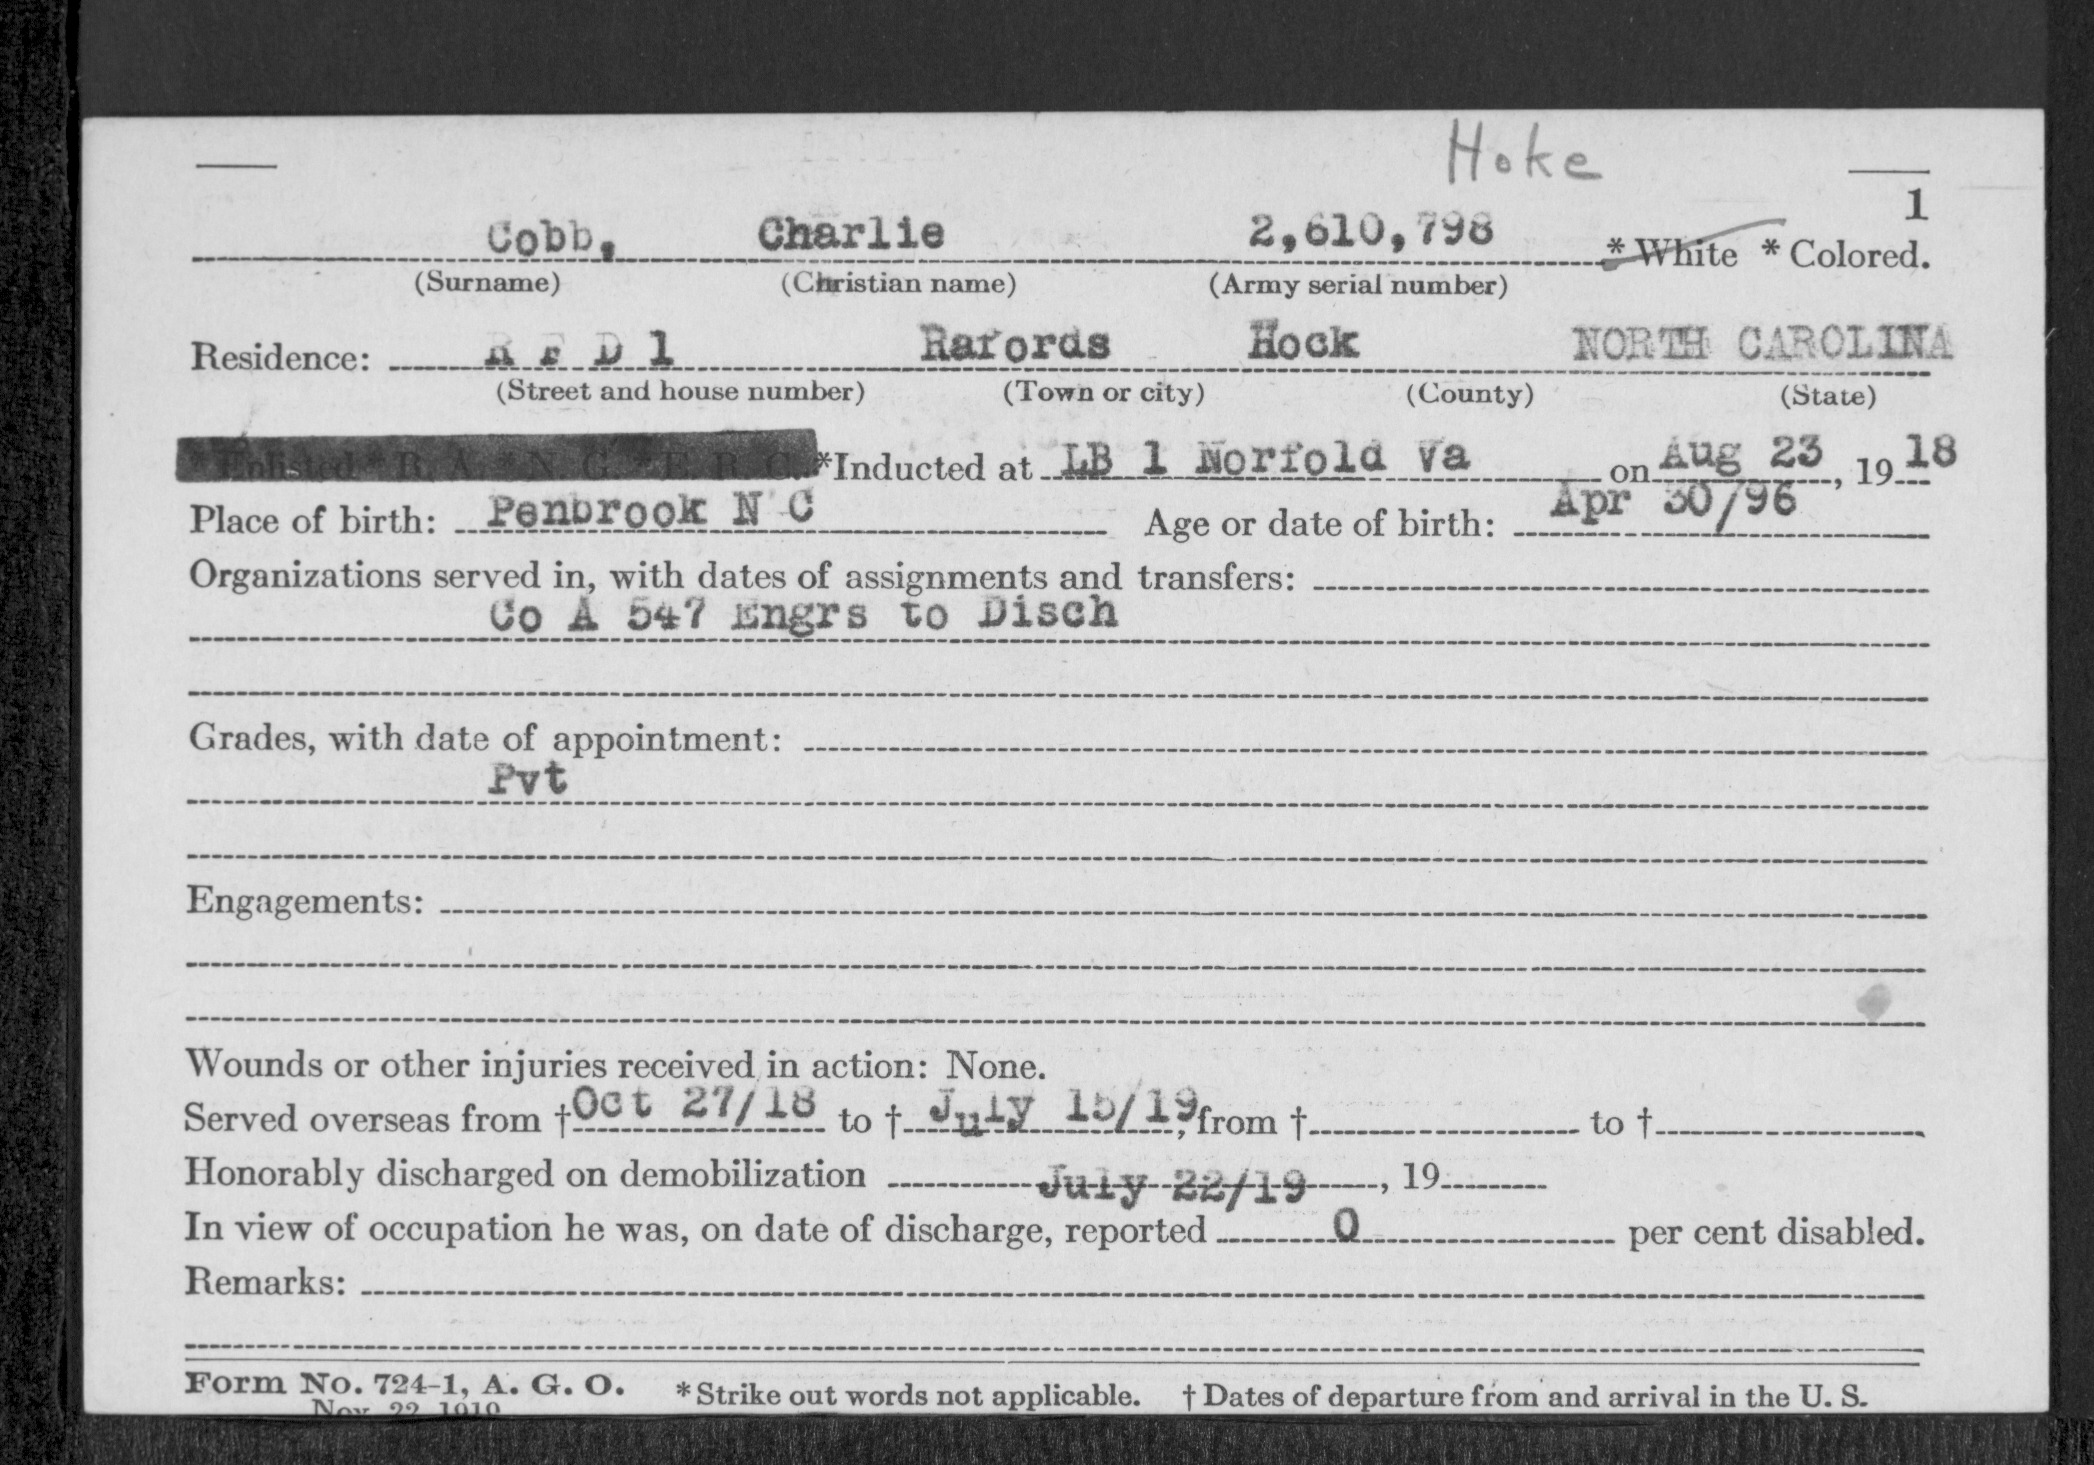 Hoke
1
Cobb, Charlie 2,610,798 * White * Colored.
(Surname) (Christian name) (Army serial number)
Residence: R F D 1 Rafords Hock NORTH CAROLINA
(Street and house number) (Town or city) (County) (State)
*Enlisted *R. A. *N. G. *E. R. C. *Inducted at LB 1 Norfold Va on Aug 23, 1918
Place of birth: Penbrook N C Age or date of birth: Apr 30/96
Organizations served in, with dates of assignments and transfers:
Co A 547 Engrs to Disch
Grades, with date of appointment:
Pvt
Engagements:
Wounds or other injuries received in action: None.
Served overseas from † Oct 27/18 to † July 15/19, from † to †
Honorably discharged on demobilization July 22/19, 19
In view of occupation he was, on date of discharge, reported 0 per cent disabled.
Remarks:
Form No. 724-1, A. G. O. * Strike out words not applicable. † Dates of departure from and arrival in the U. S.
Nov. 22, 1919